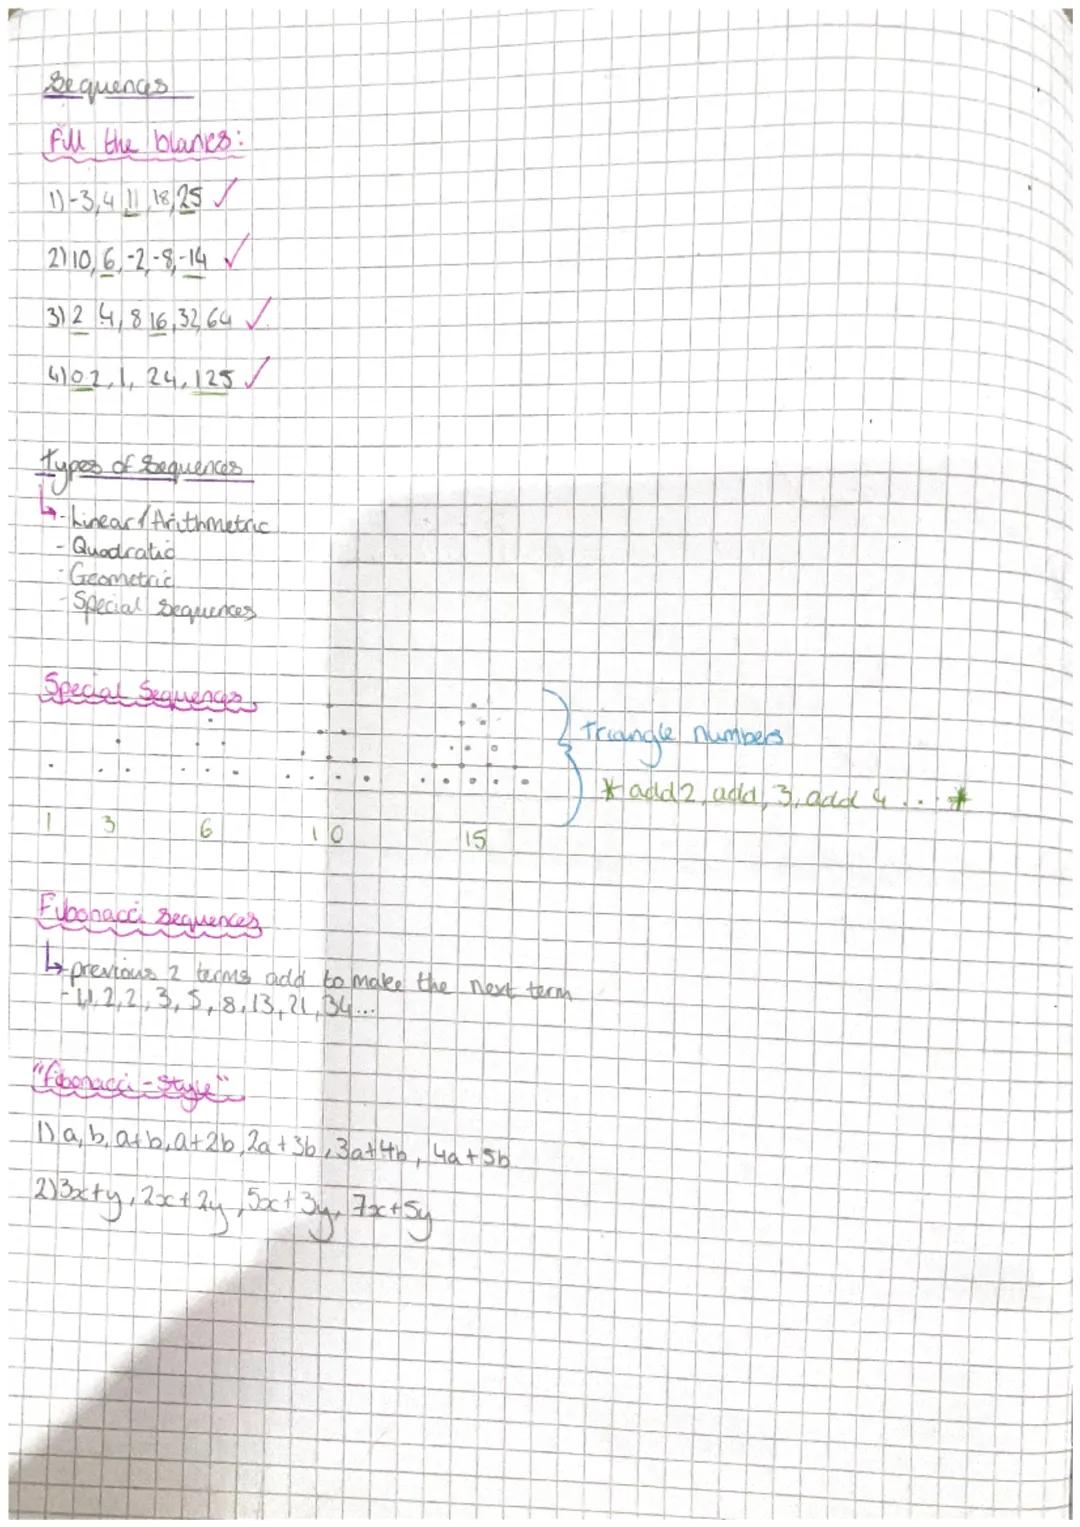 Sequences
Fill the blanks:
1) -3, 4, 11, 18, 25 ✓
2) 10, 6, -2, -8, -14 ✓
3) 2, 4, 8, 16, 32, 64 ✓
4) 0.2, 1, 24, 125 ✓
Types of Sequences
↳ - Linear / Arithmetric
- Quadratic
- Geometric
- Special Sequences
Special Sequences
triangle numbers
* add 2, add, 3, add 4 ... *
1 3 6 10 15
Fibonacci Sequences
↳ - previous 2 terms add to make the next term
- 1,1,2,2,3,5,8,13,21,34...
"Fibonacci-Style"
1) a, b, a+b, a+2b, 2a+3b, 3a+4b, 4a+5b
2) 3x+y, 2x+2y, 5x+3y, 7x+5y